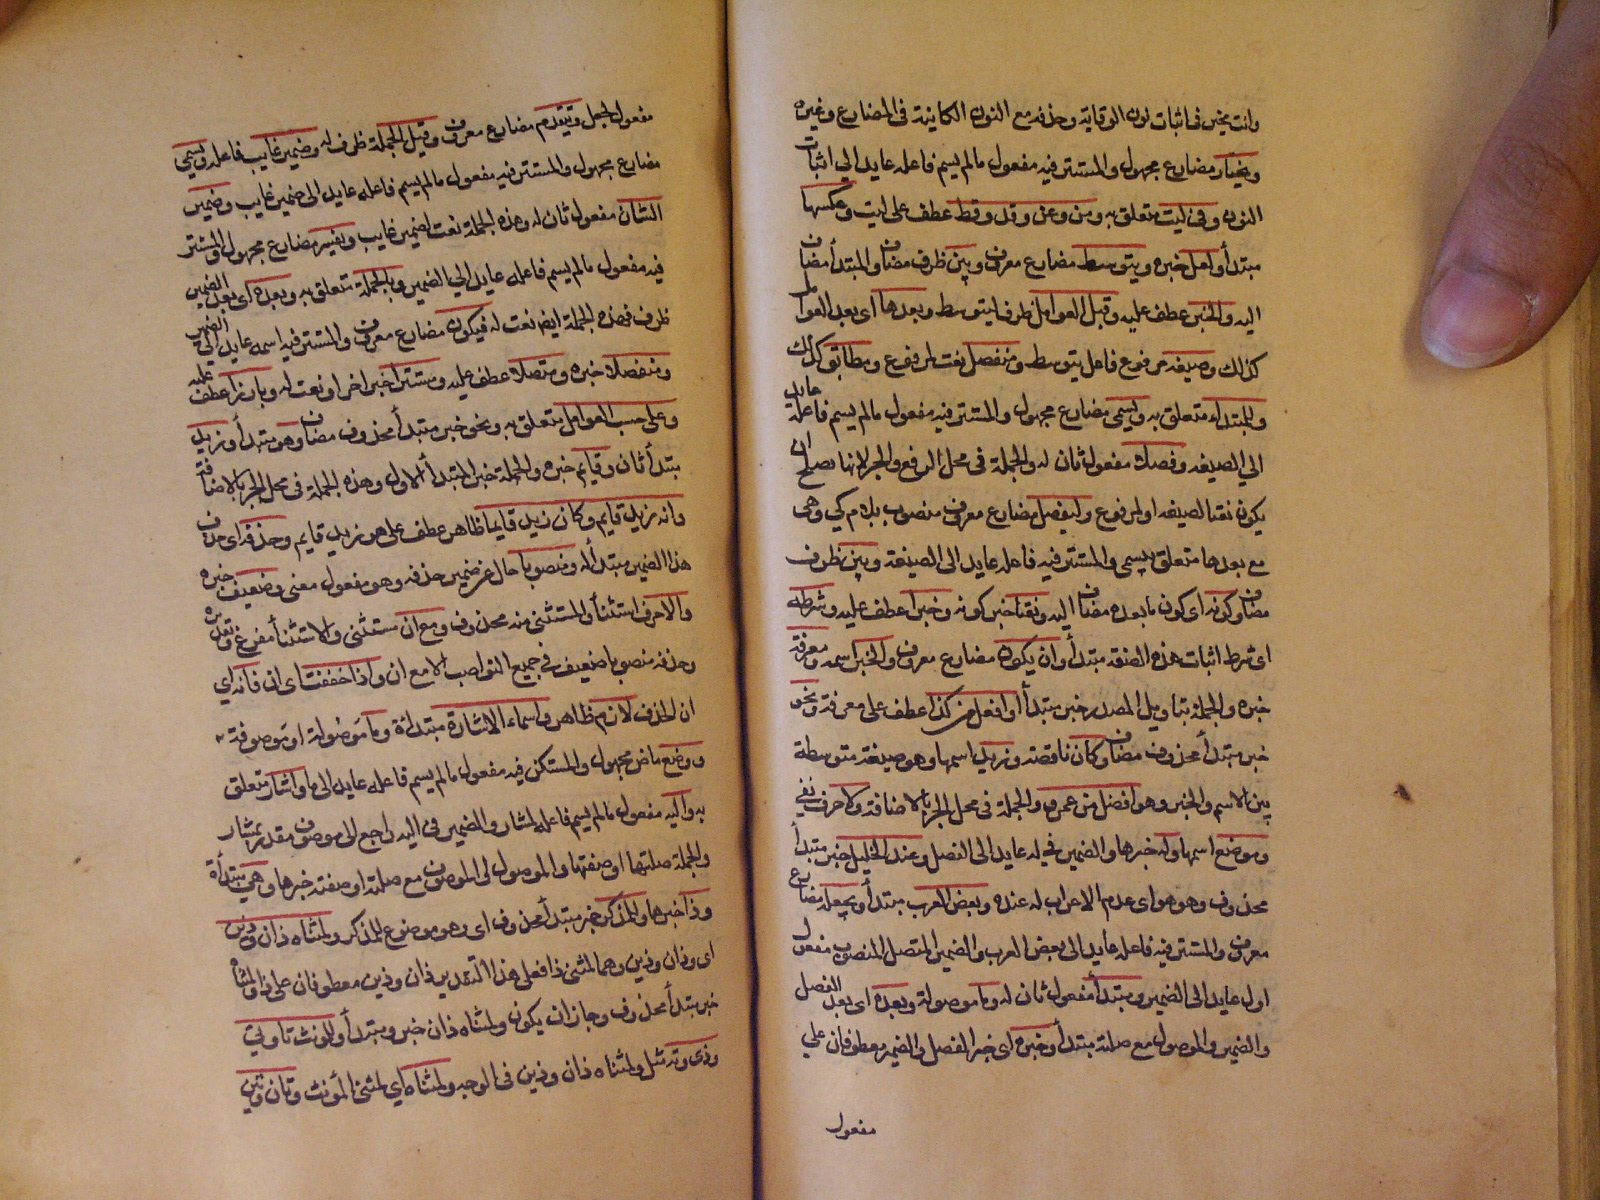 وانت مخير في اثبات نون الوقاية وحذفه مع النون الكاينة في المضارع وغيره
ويختار مضارع مجهول والمستتر فيه مفعول مالم يسم فاعله عايد الى اثبات
النون وفي ليت متعلق به ومن وعن وقد وقط عطف على ليت وعكسها
مبتدأ ولعل خبره ويتوسط مضارع معروف وبين ظرف مضاف والمبتدأ مضاف
اليه والخبر عطف عليه وقبل العوامل ظرف ليتوسط وبعدها اى بعد العوامل
كذلك وصيغه مرفوع فاعل يتوسط ومنفصل نعت لمرفوع ومطابق كذلك
وللمبتداء متعلق به ويسمى مضارع مجهول والمستتر فيه مفعول مالم يسم فاعله عايد
الى الصيغه وفصلا مفعول ثان له والجملة في محل الرفع والجر لانها تصلح ان
يكون نعتا لصيغه او لمرفوع وليفصل مضارع معروف منصوب بلام كي وهى
مع بعدها متعلق بيسمى والمستتر فيه فاعله عايد الى الصيغة وبين ظرف
مضاف وكونه اى كون ما بعده مضاف اليه ونعتا خبر كونه وخبرا عطف عليه وشرطه
اى شرط اثبات هذه الصنفه مبتدأ وان يكون مضارع معروف والخبر اسمه ومعرفة
خبره والجملة بتاويل المصدر خبر مبتدأ او افعل من كذا عطف على معرفة ونحو
خبر مبتدأ محذوف مضاف وكان ناقصة وزيد اسمها وهو صيغة متوسطة
بين الاسم والخبر وهو افضل من عمرو والجملة في محل الجر بالاضافة ولا حرف نفي
وموضع اسمها وله خبرها والضمير في له عايد الى الفصل وعند الخليل خبر مبتدأ
محذوف وهو هو اى عدم الاعراب له عنده وبعض العرب مبتدأ ويجعله مضارع
معروف والمستتر فيه فاعله عايد الى بعض العرب والضمير المتصل المنصوب مفعول
اول عايد الى الضمير ومبتدأ مفعول ثان له وما موصولة وبعده اى بعد الفصل
والضمير والموصول مع صلته مبتدأ وخبره اى خبر الفصل والضمير معطوفان على
مفعول
مفعول لجعل ويتقدم مضارع معروف وقبل الجملة ظرف له وضمير غايب فاعله ويسمى
مضارع مجهول والمستتر فيه مفعول مالم يسم فاعله عايد الى ضمير غايب وضمير
الشان مفعول ثان له وهذه الجملة نعت لضمير غايب ويفسر مضارع مجهول والمستتر
فيه مفعول مالم يسم فاعله عايد الى الضمير وبالجملة متعلق به وبعده اى بعد الضمير
ظرف فهذه الجملة ايضا نعت له فيكون مضارع معروف والمستتر فيه اسمه عايد الى الضمير
ومنفصلا خبره ومتصلا عطف عليه ومستترا خبر اخر او نعت له وبارزا عطف عليه
وعلى حسب العوامل متعلق به ونحو خبر مبتدأ محذوف مضاف وهو مبتدأ وزيد
مبتدأ ثان وقايم خبره والجملة خبر المبتدأ الاول وهذه الجملة في محل الجر بالاضافة
وانه زيد قايم وكان زيد قايما ظاهر عطف على هو زيد قايم وحذفه اى حذف
هذا الضمير مبتدأ له ومنصوبا حال عن ضمير حذفه وهو مفعول معنى وضعيف خبره
والا حرف استثنأ والمستثنى منه محذوف ومع ان مستثنى والاستثنأ مفرغ وتقديره
وحذفه منصوبا ضعيف في جميع النواصب الا مع ان واذا خففت اى ان فانه اى
ان الحذف لازم ظاهر واسماء الاشارة مبتدأة وما موصولة او موصوفة
ووضع ماض مجهول والمستكن فيه مفعول مالم يسم فاعله عايد الى ما ولمشار متعلق
به واليه مفعول مالم يسم فاعله لمشار والضمير في اليه راجع الى موصوف مقدر بمشار
والجملة صلتها او صفتها والموصول او الموصوف مع صلته او صفته خبرها وهي مبتدأة
وذا خبرها وللمذكر خبر مبتدأ محذوف اى وهو موضوع للمذكر ولمثناه ذان وذين
اى وذان وذين وهما لمثنى ذا فعلى هذا التقدير ذان وذين معطوفان على ذا ولمثناه
خبر مبتدأ محذوف وجاز ان يكون ولمثناه ذان خبر ومبتدأ وللمونث تا وتي
وذى وته مثل ولمثناه ذان وذين في الوجه ولمثناه اي لمثنى المؤنث وتان وتين